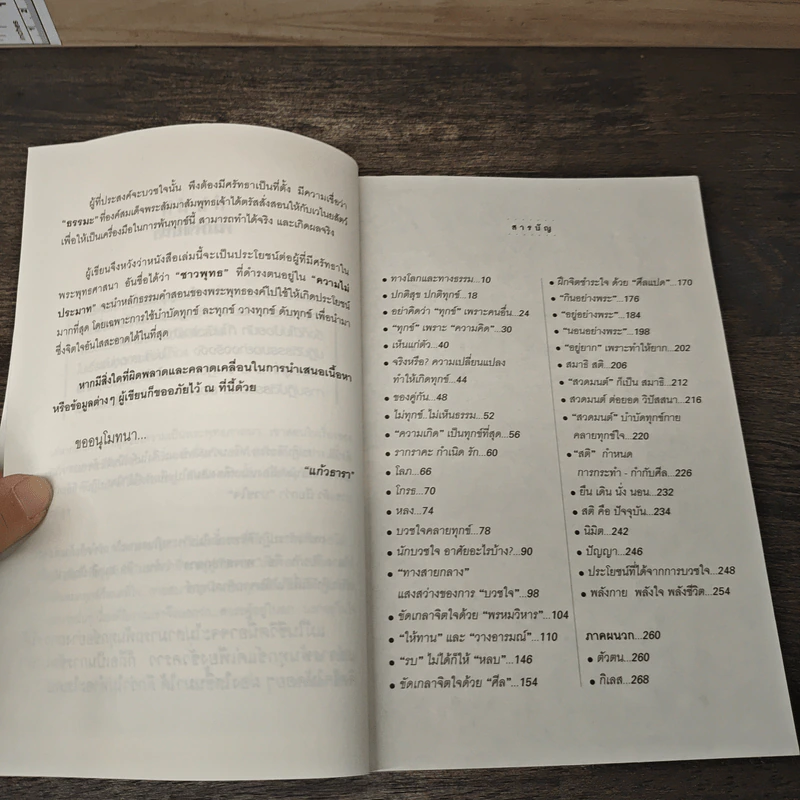 ผู้ที่ประสงค์จะบวชใจนั้น พึงต้องมีศรัทธาเป็นที่ตั้ง มีความเชื่อว่า
"ธรรมะ" ที่องค์สมเด็จพระสัมมาสัมพุทธเจ้าได้ตรัสสั่งสอนให้กับเวไนยสัตว์
เพื่อให้เป็นเครื่องมือในการพ้นทุกข์นี้ สามารถทำได้จริง และเกิดผลจริง
ผู้เขียนจึงหวังว่าหนังสือเล่มนี้จะเป็นประโยชน์ต่อผู้ที่มีศรัทธาใน
พระพุทธศาสนา อันชื่อได้ว่า "ชาวพุทธ" ที่ดำรงตนอยู่ใน "ความไม่
ประมาท" จะนำหลักธรรมคำสอนของพระพุทธองค์ไปใช้ให้เกิดประโยชน์
มากที่สุด โดยเฉพาะการใช้บำบัดทุกข์ ละทุกข์ วางทุกข์ ดับทุกข์ เพื่อนำมา
ซึ่งจิตใจอันใสสะอาดได้ในที่สุด
หากมีสิ่งใดที่ผิดพลาดและคลาดเคลื่อนในการนำเสนอเนื้อหา
หรือข้อมูลต่างๆ ผู้เขียนก็ขออภัยไว้ ณ ที่นี้ด้วย
ขออนุโมทนา...
"แก้วธารา"
สารบัญ
• ทางโลกและทางธรรม...10
• ปกติสุข ปกติทุกข์...18
• อย่าคิดว่า "ทุกข์" เพราะคนอื่น...24
• "ทุกข์" เพราะ "ความคิด"...30
• เห็นแก่ตัว...40
• จริงหรือ? ความเปลี่ยนแปลง
ทำให้เกิดทุกข์...44
• ของคู่กัน...48
• ไม่ทุกข์ ไม่เห็นธรรม...52
• "ความเกิด" เป็นทุกข์ที่สุด...56
• ราการาคะ กำเนิด รัก...60
• โลภ...66
• โกรธ...70
• หลง...74
• บวชใจคลายทุกข์...78
• นักบวชใจ อาศัยอะไรบ้าง?...90
• "ทางสายกลาง"
แสงสว่างของการ "บวชใจ"...98
• ขัดเกลาจิตใจด้วย "พรหมวิหาร"...104
• "ให้ทาน" และ "วางอารมณ์"...110
• "รบ" ไม่ได้ก็ให้ "หลบ"...146
• ขัดเกลาจิตใจด้วย "ศีล"...154
• ฝึกจิตชำระใจ ด้วย "ศีลแปด"...170
• "กินอย่างพระ"...176
• "อยู่อย่างพระ"...184
• "นอนอย่างพระ"...198
• "อยู่ยาก" เพราะทำให้ยาก...202
• สมาธิ สติ...206
• "สวดมนต์" ก็เป็น สมาธิ...212
• สวดมนต์ ต่อยอด วิปัสสนา...216
• "สวดมนต์" บำบัดทุกข์กาย
คลายทุกข์ใจ...220
• "สติ" กำหนด
การกระทำ - กำกับศีล...226
• ยืน เดิน นั่ง นอน...232
• สติ คือ ปัจจุบัน...234
• นิมิต...242
• ปัญญา...246
• ประโยชน์ที่ได้จากการบวชใจ...248
• พลังกาย พลังใจ พลังชีวิต...254
ภาคผนวก...260
• ตัวตน...260
• กิเลส...268